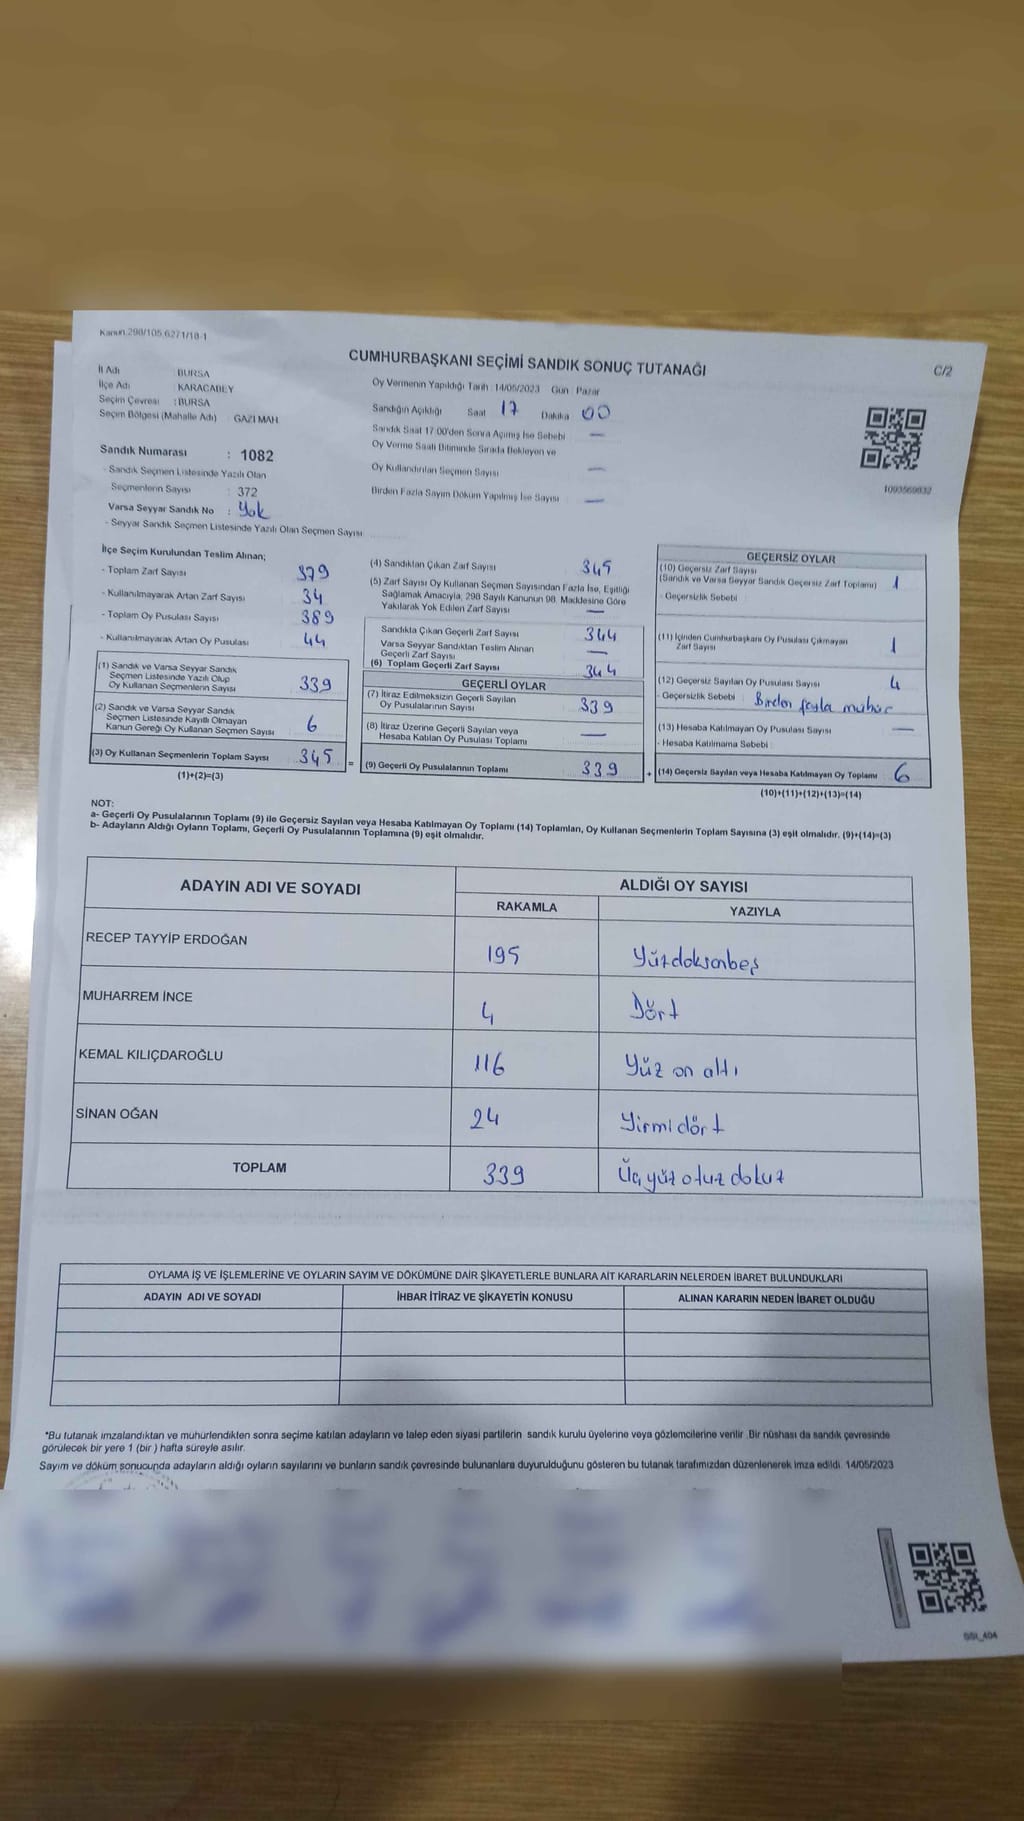 Kanun.298/105,6271/18-1
CUMHURBAŞKANI SEÇİMİ SANDIK SONUÇ TUTANAĞI
C/2
İl Adı : BURSA
İlçe Adı : KARACABEY
Seçim Çevresi : BURSA
Seçim Bölgesi (Mahalle Adı) GAZİ MAH
Oy Vermenin Yapıldığı Tarih :14/05/2023 Gün Pazar
Sandığın Açıldığı Saat 17 Dakika 00
Sandık Saat 17:00'den Sonra Açılmış İse Sebebi —
Oy Verme Saati Bitiminde Sırada Bekleyen ve
Oy Kullandırılan Seçmen Sayısı —
Birden Fazla Sayım Döküm Yapılmış İse Sayısı —
Sandık Numarası : 1082
- Sandık Seçmen Listesinde Yazılı Olan
Seçmenlerin Sayısı : 372
Varsa Seyyar Sandık No : Yok
- Seyyar Sandık Seçmen Listesinde Yazılı Olan Seçmen Sayısı
İlçe Seçim Kurulundan Teslim Alınan;
- Toplam Zarf Sayısı 379
- Kullanılmayarak Artan Zarf Sayısı 34
- Toplam Oy Pusulası Sayısı 389
- Kullanılmayarak Artan Oy Pusulası 44
(1) Sandık ve Varsa Seyyar Sandık
Seçmen Listesinde Yazılı Olup
Oy Kullanan Seçmenlerin Sayısı 339
(2) Sandık ve Varsa Seyyar Sandık
Seçmen Listesinde Kayıtlı Olmayan
Kanun Gereği Oy Kullanan Seçmen Sayısı 6
(3) Oy Kullanan Seçmenlerin Toplam Sayısı 345
(1)+(2)=(3)
=
(4) Sandıktan Çıkan Zarf Sayısı 345
(5) Zarf Sayısı Oy Kullanan Seçmen Sayısından Fazla İse, Eşitliği
Sağlamak Amacıyla, 298 Sayılı Kanunun 98. Maddesine Göre
Yakılarak Yok Edilen Zarf Sayısı —
Sandıkta Çıkan Geçerli Zarf Sayısı 344
Varsa Seyyar Sandıktan Teslim Alınan
Geçerli Zarf Sayısı —
(6) Toplam Geçerli Zarf Sayısı 344
GEÇERLİ OYLAR
(7) İtiraz Edilmeksizin Geçerli Sayılan
Oy Pusulalarının Sayısı 339
(8) İtiraz Üzerine Geçerli Sayılan veya
Hesaba Katılan Oy Pusulası Toplamı —
(9) Geçerli Oy Pusulalarının Toplamı 339
+
GEÇERSİZ OYLAR
(10) Geçersiz Zarf Sayısı
(Sandık ve Varsa Seyyar Sandık Geçersiz Zarf Toplamı) 1
- Geçersizlik Sebebi
(11) İçinden Cumhurbaşkanı Oy Pusulası Çıkmayan
Zarf Sayısı 1
(12) Geçersiz Sayılan Oy Pusulası Sayısı 4
- Geçersizlik Sebebi Birden fazla mühür
(13) Hesaba Katılmayan Oy Pusulası Sayısı —
- Hesaba Katılmama Sebebi
(14) Geçersiz Sayılan veya Hesaba Katılmayan Oy Toplamı 6
(10)+(11)+(12)+(13)=(14)
NOT:
a- Geçerli Oy Pusulalarının Toplamı (9) ile Geçersiz Sayılan veya Hesaba Katılmayan Oy Toplamı (14) Toplamları, Oy Kullanan Seçmenlerin Toplam Sayısına (3) eşit olmalıdır. (9)+(14)=(3)
b- Adayların Aldığı Oyların Toplamı, Geçerli Oy Pusulalarının Toplamına (9) eşit olmalıdır.
ADAYIN ADI VE SOYADI
ALDIĞI OY SAYISI
RAKAMLA YAZIYLA
RECEP TAYYİP ERDOĞAN 195 Yüzdoksanbeş
MUHARREM İNCE 4 Dört
KEMAL KILIÇDAROĞLU 116 Yüz on altı
SİNAN OĞAN 24 Yirmi dört
TOPLAM 339 Üçyüz otuz dokuz
OYLAMA İŞ VE İŞLEMLERİNE VE OYLARIN SAYIM VE DÖKÜMÜNE DAİR ŞİKAYETLERLE BUNLARA AİT KARARLARIN NELERDEN İBARET BULUNDUKLARI
ADAYIN ADI VE SOYADI İHBAR İTİRAZ VE ŞİKAYETİN KONUSU ALINAN KARARIN NEDEN İBARET OLDUĞU
*Bu tutanak imzalandıktan ve mühürlendikten sonra seçime katılan adayların ve talep eden siyasi partilerin sandık kurulu üyelerine veya gözlemcilerine verilir. Bir nüshası da sandık çevresinde
görülecek bir yere 1 (bir ) hafta süreyle asılır.
Sayım ve döküm sonucunda adayların aldığı oyların sayılarını ve bunların sandık çevresinde bulunanlara duyurulduğunu gösteren bu tutanak tarafımızdan düzenlenerek imza edildi. 14/05/2023